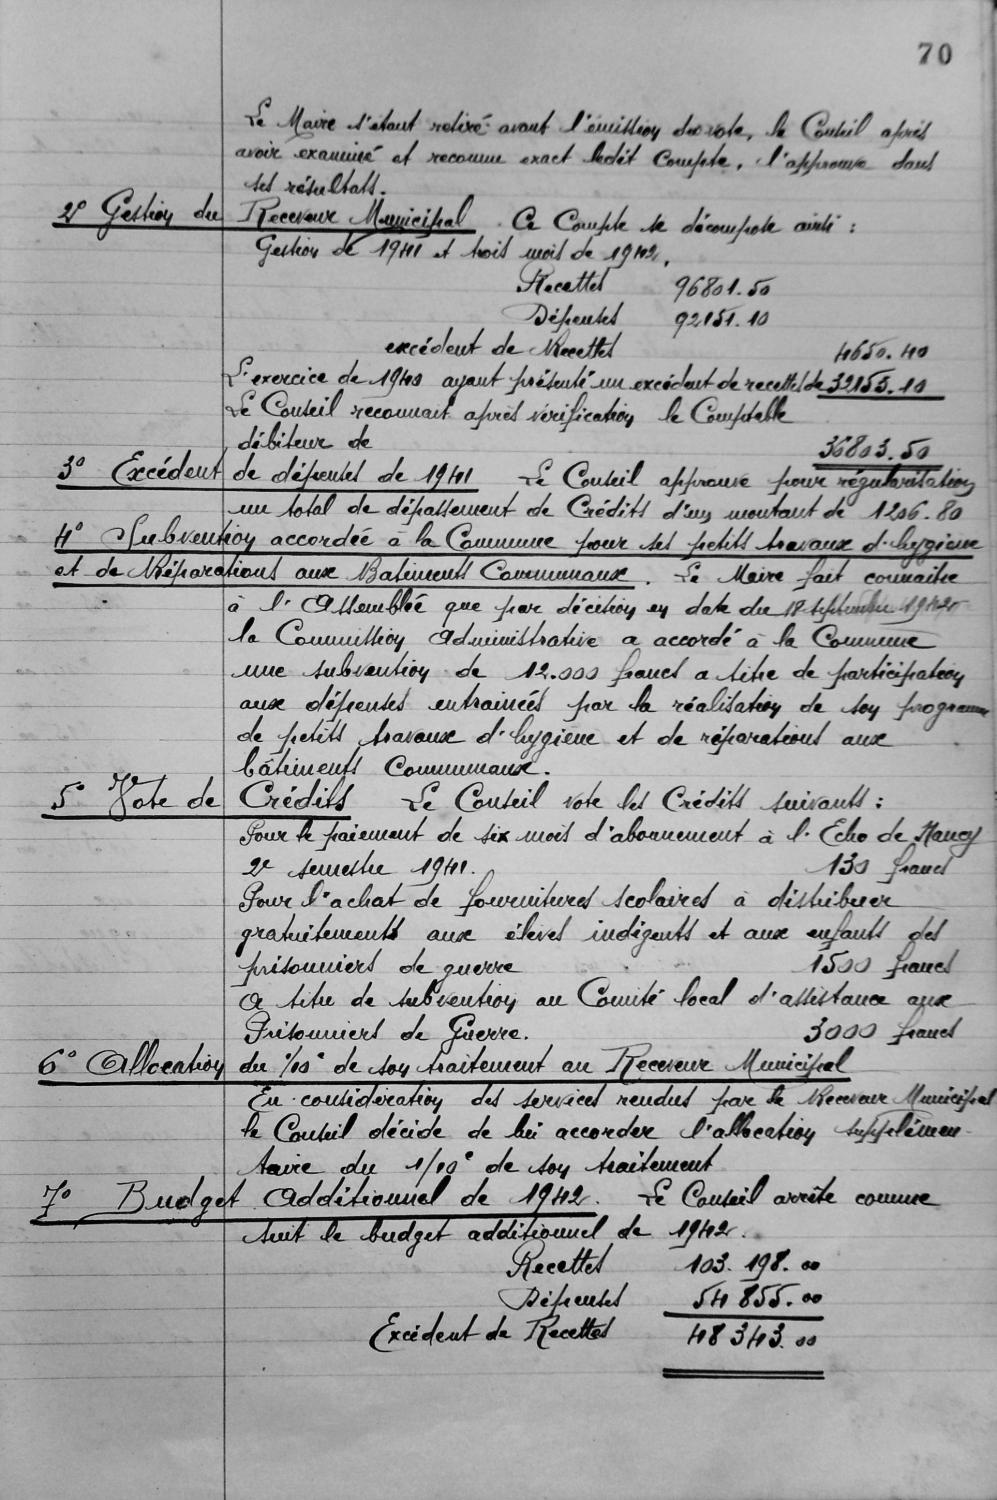 70
Le Maire s'étant retiré avant l'émission du vote, le Conseil après
avoir examiné et reconnu exact ledit Compte, l'approuve dans
ses résultats.
2° Gestion du Receveur Municipal. Ce Compte se décompose ainsi :
Gestion de 1941 et trois mois de 1942.
Recettes 96801.50
Dépenses 92151.10
excédent de Recettes 4650.40
L'exercice de 1940 ayant présenté un excédent de recettes de 32153.10
Le Conseil reconnait après vérification le Comptable
débiteur de 36803.50
3° Excédent de dépenses de 1941 Le Conseil approuve pour régularisation
un total de dépassement de Crédits d'un montant de 1206.80
4° Subvention accordée à la Commune pour ses petits travaux d'hygiène
et de Réparations aux Batiments Communaux. Le Maire fait connaitre
à l'Assemblée que par décision en date du 18 septembre 1942
la Commission Administrative a accordé à la Commune
une subvention de 12.000 francs a titre de participation
aux dépenses entrainées par la réalisation de son programme
de petits travaux d'hygiène et de réparations aux
bâtiments Communaux.
5° Vote de Crédits Le Conseil vote les Crédits suivants :
Pour le paiement de six mois d'abonnement à l'Echo de Nancy
2e semestre 1941. 130 francs
Pour l'achat de fournitures scolaires à distribuer
gratuitements aux élèves indigents et aux enfants des
prisonniers de guerre 1500 francs
A titre de subvention au Comité local d'assistance aux
Prisonniers de Guerre. 3000 francs
6° Allocation du 1/10e de son traitement au Receveur Municipal
En considération des services rendus par le Receveur Municipal
le Conseil décide de lui accorder l'allocation supplémen-
taire du 1/10e de son traitement
7° Budget Additionnel de 1942. Le Conseil arrête comme
suit le budget additionnel de 1942.
Recettes 103.198.00
Dépenses 54 855.00
Excédent de Recettes 48343.00